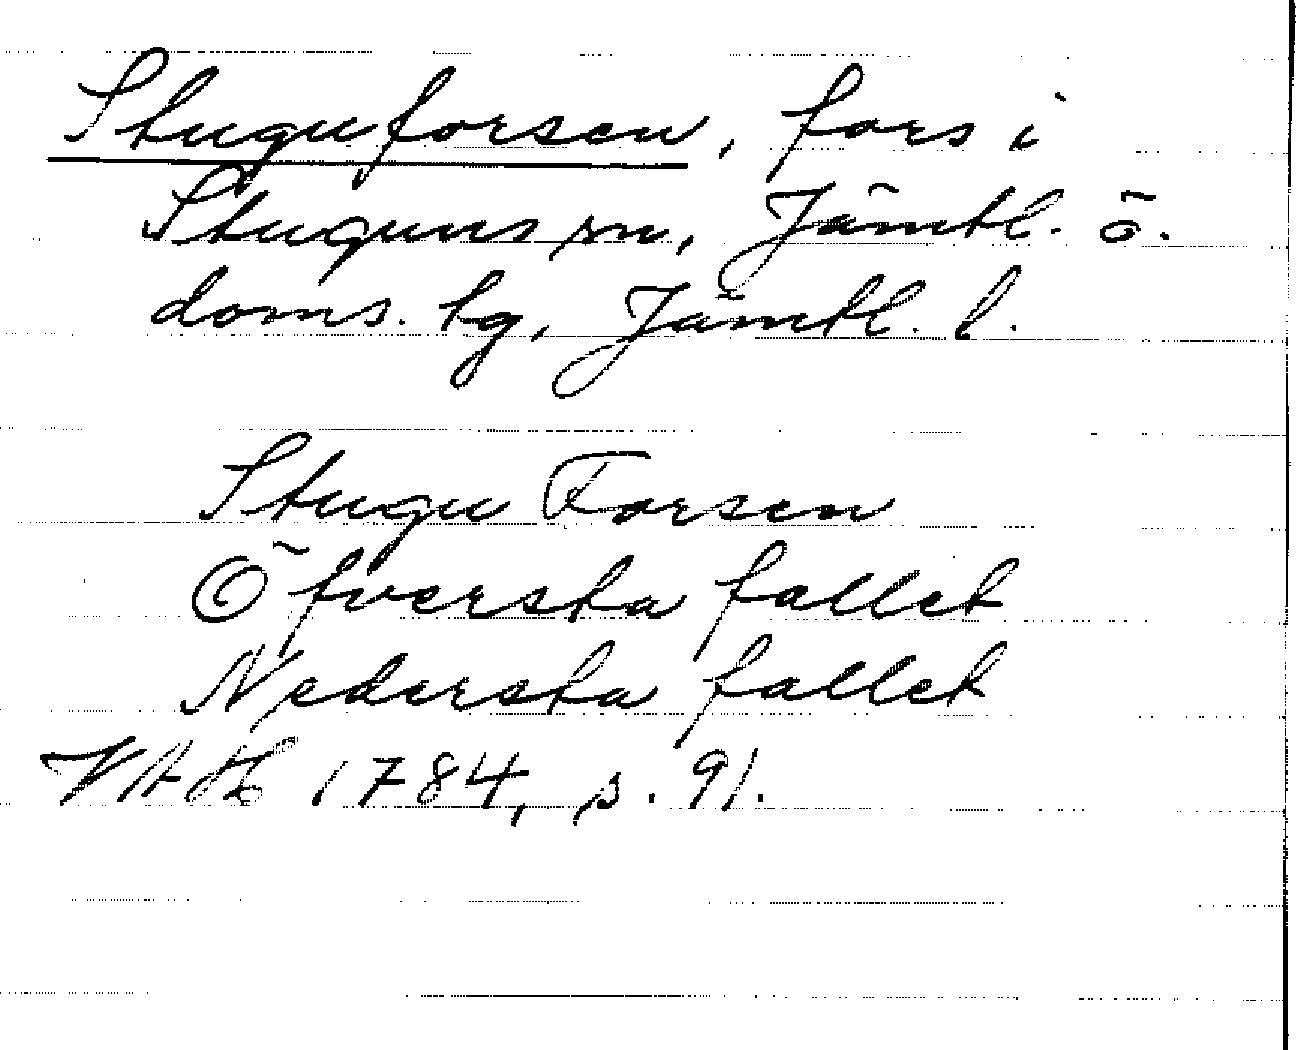 Stuguforsen, fors i
Stuguns sn, Jämtl. ö.
doms. hg, Jämtl. l.
Stugu Forsen
Öfversta fallet
Nedersta fallet
VAH 1784, s. 91.